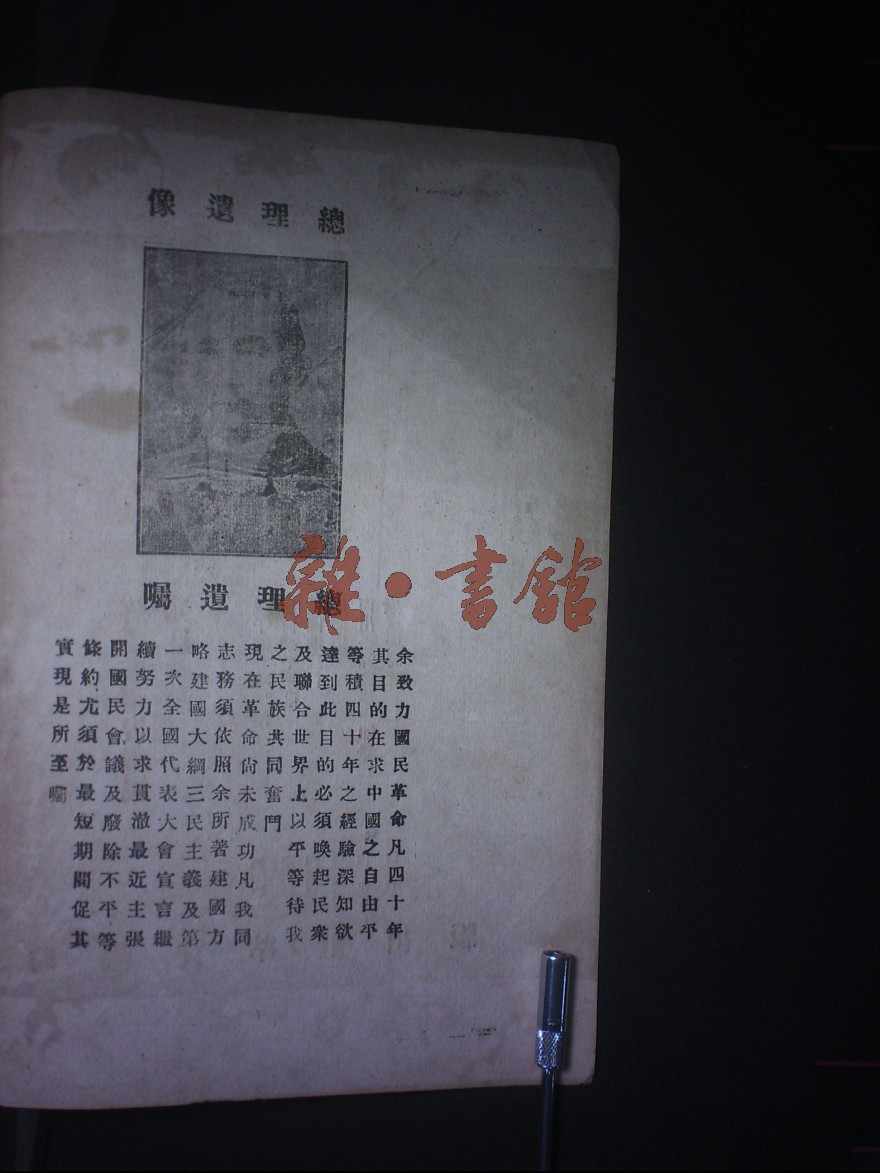 總理遺像
雜·書館
總理遺囑
余致力國民革命凡四十年
其目的在求中國之自由平
等積四十年之經驗深知欲
達到此目的必須喚起民衆
及聯合世界上以平等待我
之民族共同奮鬥
現在革命尙未成功凡我同
志務須依照余所著建國方
略建國大綱三民主義及第
一次全國代表大會宣言繼
續努力以求貫澈最近主張
開國民會議及廢除不平等
條約尤須於最短期間促其
實現是所至囑